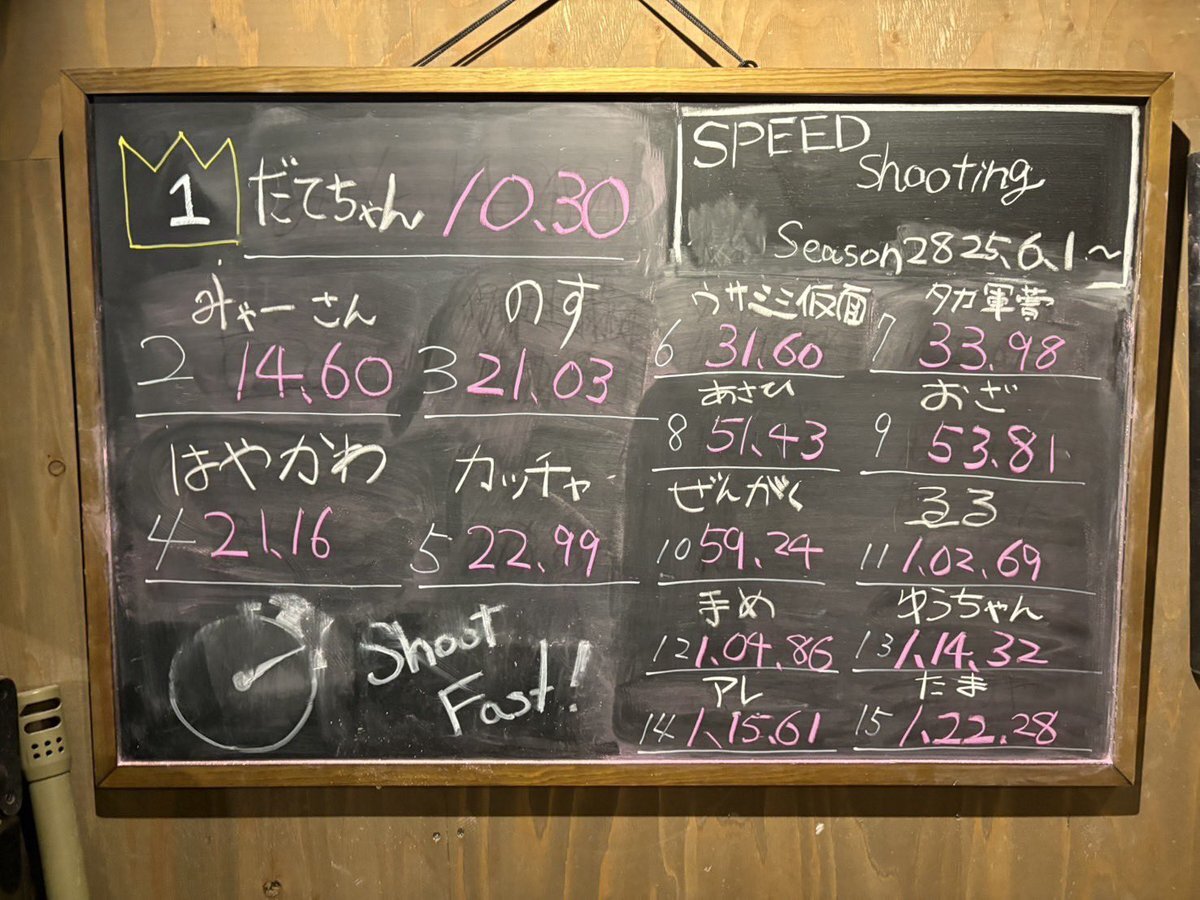 1 だてちゃん 10.30
SPEED
Shooting
Season28 25.6.1~
みゃーさん
2 14.60
のす
3 21.03
はやかわ
4 21.16
カッチャ
5 22.99
ウサミミ仮面
6 31.60
タカ軍曹
7 33.98
あさひ
8 51.43
おざ
9 53.81
ぜんがく
10 59.24
るる
11 1.02.69
手め
12 1.04.86
ゆうちゃん
13 1.14.32
アレ
14 1.15.61
たま
15 1.22.28
Shoot
Fast!